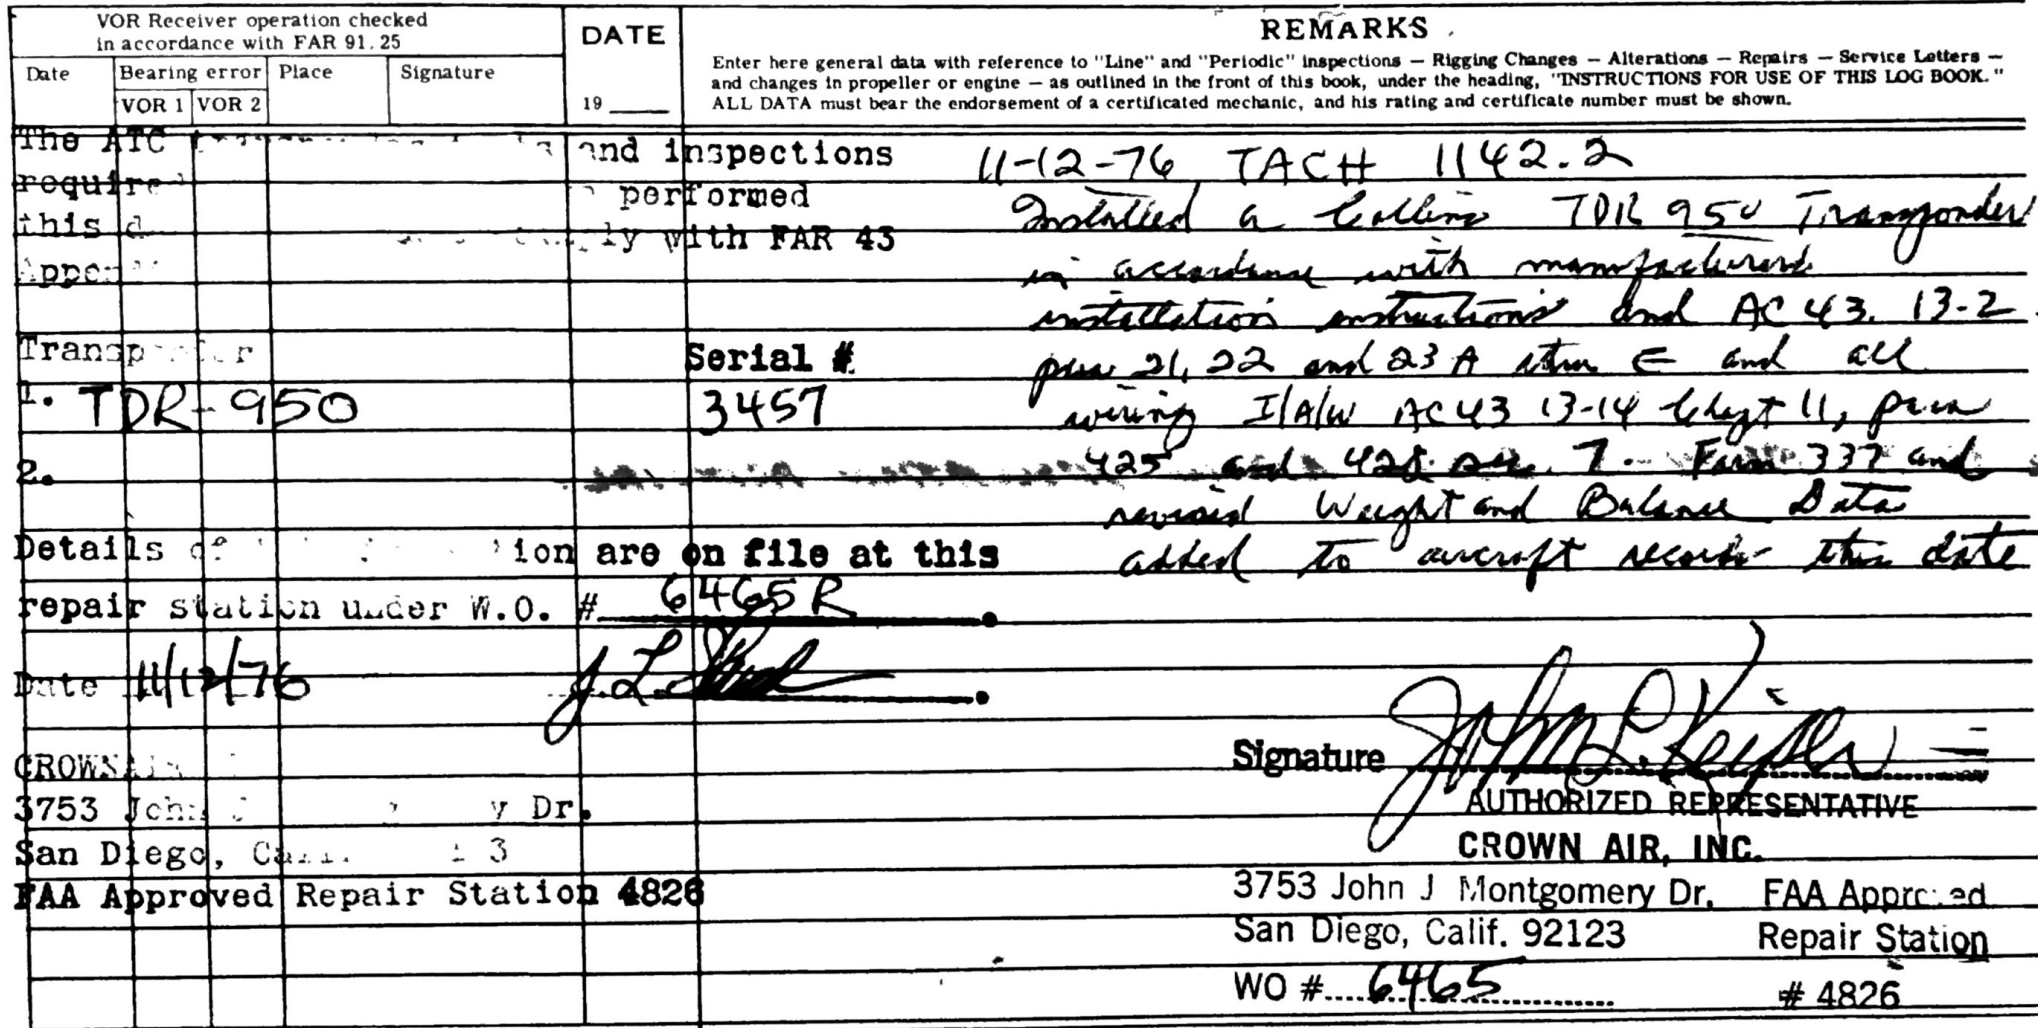 VOR Receiver operation checked
in accordance with FAR 91.25
Date
Bearing error
VOR 1 VOR 2
Place
Signature
DATE
19
REMARKS
Enter here general data with reference to "Line" and "Periodic" inspections — Rigging Changes — Alterations — Repairs — Service Letters —
and changes in propeller or engine — as outlined in the front of this book, under the heading, "INSTRUCTIONS FOR USE OF THIS LOG BOOK."
ALL DATA must bear the endorsement of a certificated mechanic, and his rating and certificate number must be shown.
The ATC and inspections
performed
this with FAR 43
Serial #
1. TDR-950 3457
2.
Details are on file at this
repair station under W.O. # 6465R.
Date 11/12/76 J. L.
3753 John Dr.
San Diego,
FAA Approved Repair Station 4826
11-12-76 TACH 1142.2
Installed a Collins TDR 950 Transponder
in accordance with manufacturers
installation instructions and AC 43. 13-2
21, 22 and 23A item E and all
wiring I/A/W AC43 13-14 Chapt 11, para
425 and 428 sec. 7. Form 337 and
revised Weight and Balance Data
added to aircraft records this date
Signature John L.
AUTHORIZED REPRESENTATIVE
CROWN AIR, INC.
3753 John J Montgomery Dr. FAA Approved
San Diego, Calif. 92123 Repair Station
WO # 6465 # 4826